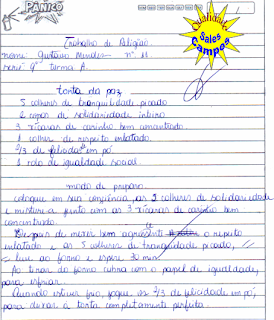 PÂNICO
Qualidade
Sales
Campos
Trabalho de Religião.
nome Gustavo Mendes nº 11
série 9º turma A.
torta da paz
5 colheres de tranquilidade picado
2 copos de solidariedade inteiro
3 xícaras de carinho bem concentrado.
1 colher de respeito enlatado.
2/3 de felicidade em pó
1 rolo de igualdade social.
modo de preparo.
coloque em sua consciência, as 2 colheres de solidariedade
e misture-a junto com as 3 xícaras de carinho bem
concentrado.
Depois de mexer bem acrescente o respeito
enlatado e as 5 colheres de tranquilidade picado,
leve ao forno e espere 30 min.
Ao tirar do forno cubra com o papel de igualdade,
para esfriar.
Quando estiver frio, jogue os 2/3 de felicidade em pó,
para deixar a torta completamente perfeita.